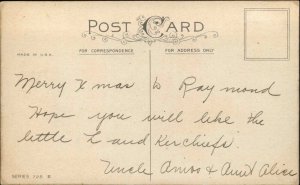 POST CARD
MADE IN U.S.A.
FOR CORRESPONDENCE
FOR ADDRESS ONLY
Merry Xmas to Raymond
Hope you will like the
little Hand Kerchiefs
Uncle Amos & Aunt Alice
SERIES 725 B